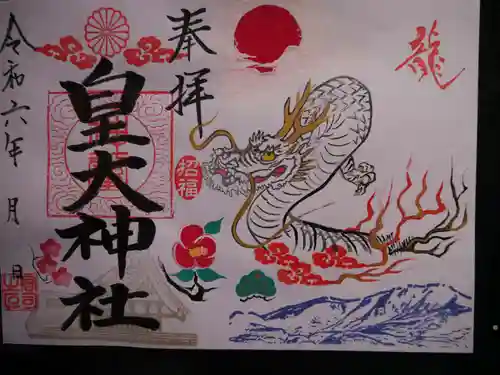 奉拝
皇大神社
令和六年 月 日
招福
龍